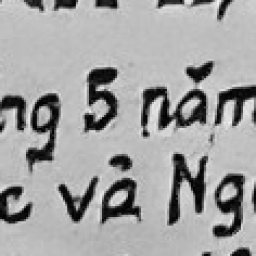 ng 5 năm
c và Ng